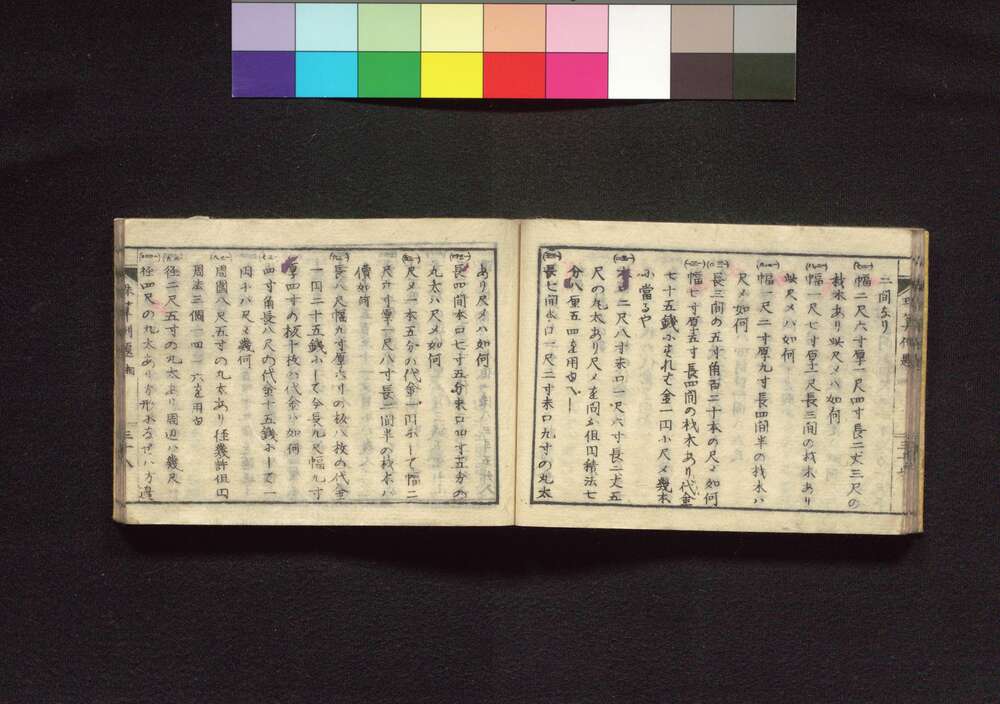 二間なり
幅二尺六寸厚一尺四寸長二丈三尺の
材木あり此尺〆ハ如何
幅一尺七寸厚一尺長三間の材木あり
此尺〆ハ如何
幅一尺二寸厚九寸長四間半の材木ハ
尺〆如何
長三間の五寸角百二十本の尺〆如何
幅七寸厚五寸長四間の材木あり代金
七十五銭にすれバ金一円に尺〆幾本
に當るや
本口二尺八寸末口一尺六寸長二丈五
尺の丸太あり尺〆を問ふ但円積法七
分八厘五四を用ゆべし
長七間本口一尺二寸末口九寸の丸太
あり尺〆ハ如何
長四間本口七寸五分末口四寸五分の
丸太ハ尺〆如何
尺〆一本五分ハ代金一円にして幅二
尺六寸厚一尺八寸長二間半の材木ハ
價如何
長八尺幅九寸厚六寸の板八枚の代金
一円二十五銭にして今長九尺幅九寸
厚四寸の板十枚ハ代金ハ如何
四寸角長八尺の代金十五銭にして一
円ナハ尺〆幾何
周圍八尺五寸の丸太あり径幾許但円
周法三個一四一六を用ゆ
径二尺五寸の丸太あり周辺ハ幾尺
径四尺の丸太あり方形にるせハ方邊
三十八